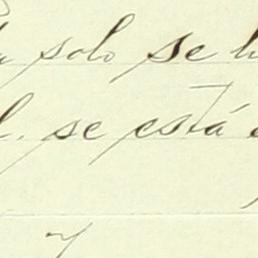 solo se
se está
y